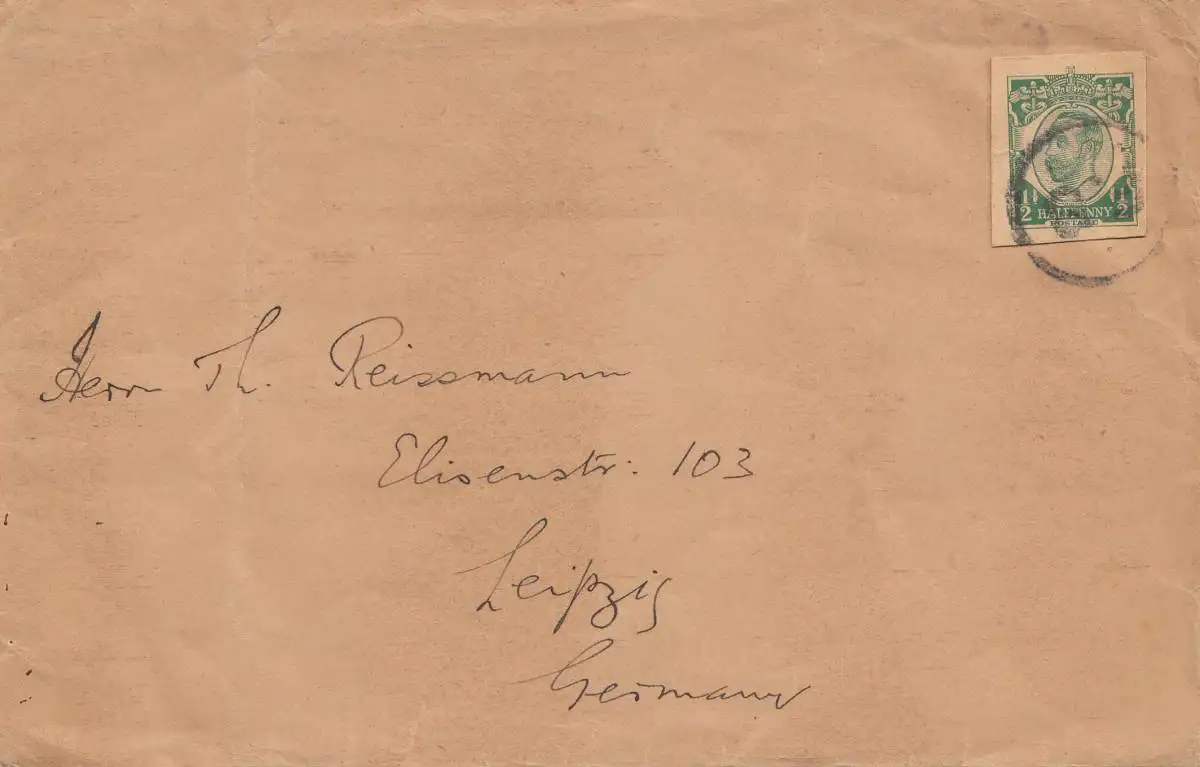 1/2 HALFPENNY 1/2
POSTAGE
Herrn Th. Reissmann
Elisenstr: 103
Leipzig
Germany